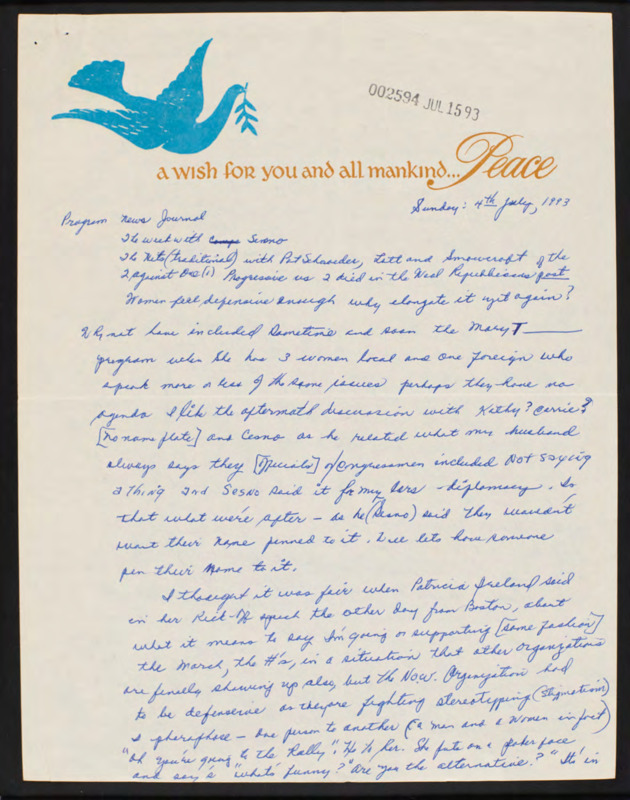 002594 JUL 15 93
a wish for you and all mankind... Peace
Sunday: 4th July, 1993
Program News Journal
The week with Sesno
The Nets (traditional) with Pat Schroeder, Lott and Snowcroft of the
2 against One (1) Progressive vs 2 died in the Wool Republicans post
Women feel defensive enough why elongate it yet again?
Why not have included sometime and soon the Mary T
program when she has 3 women local and one foreign who
speak more or less of the same issues perhaps they have no
agenda I like the aftermath discussion with Kathy? Carrie?
[no name plate] and Cesno as he related what my husband
always says they [officials] o/congressmen included NOT saying
a Thing and Sesno said it for my Sers - diplomacy. So
that what we're after - as he (Sesno) said they wouldn't
want their name penned to it. Well lets have someone
pen their name to it.
I thought it was fair when Patricia Ireland said
in her Kick-Off speech the other day from Boston, about
what it means to say I'm going or supporting [some fashion]
the March, the #'s, in a situation that other organizations
are finally showing up also, but the N.O.W. Organization had
to be defenserve as they're fighting stereotypping (stigmatism)
I pharaphase - One person to another (a man and a women in fact)
"oh you're going to the Rally". He to her. She puts on a poker face
and say's "what's funny?" "Are you the alternative?" "It's in